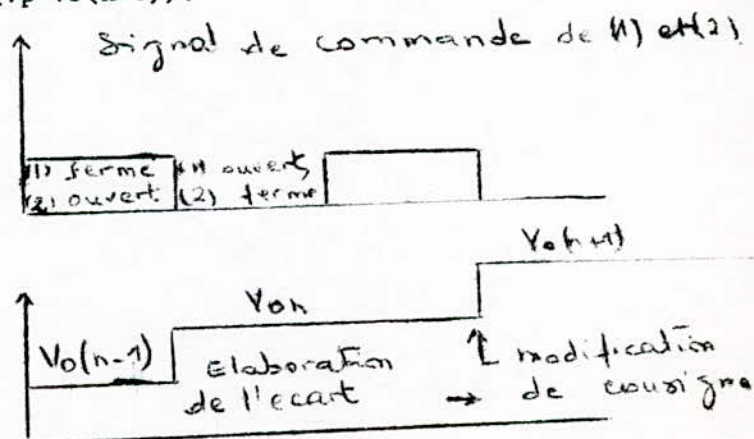 Signal de commande de (1) et (2)
(1) fermé (1) ouvert,
(2) ouvert (2) fermé
Vo(n+1)
Von
Vo(n-1)
Elaboration modification
de l'ecart → de consigne